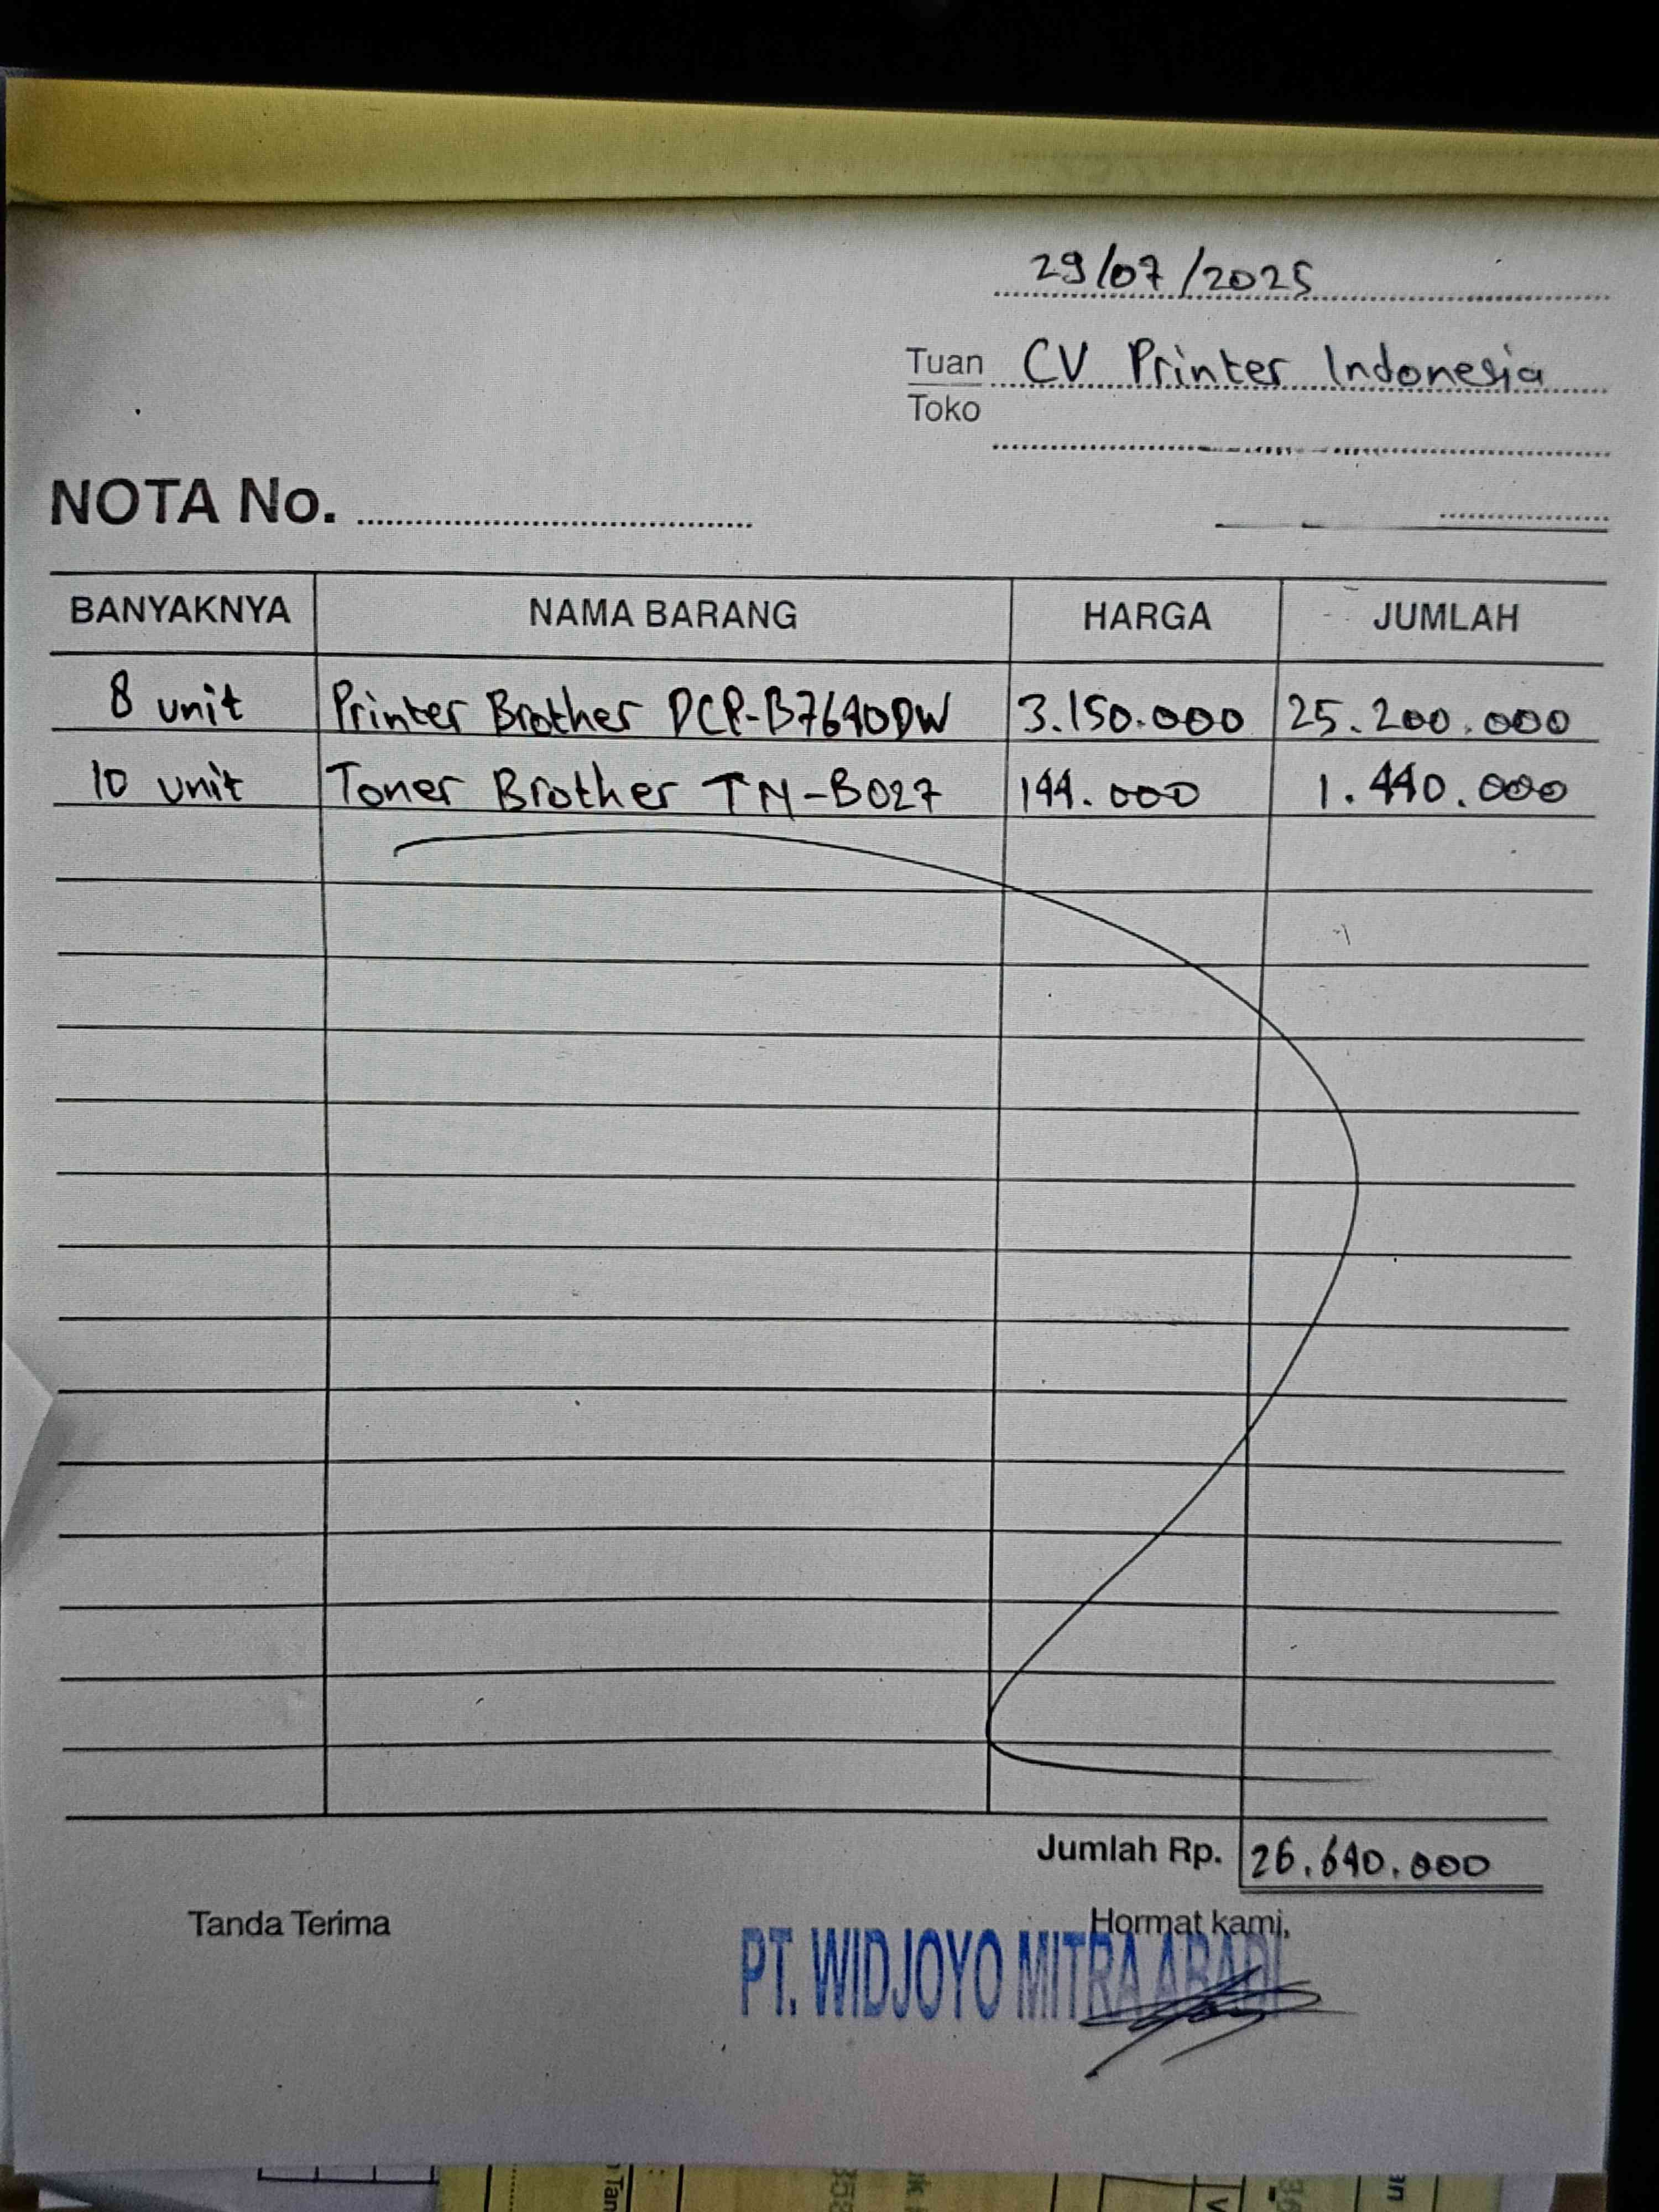 29/07/2025
Tuan CV Printer Indonesia
Toko
NOTA No.
BANYAKNYA NAMA BARANG HARGA JUMLAH
8 unit Printer Brother DCP-B7640DW 3.150.000 25.200.000
10 unit Toner Brother TN-B027 144.000 1.440.000
Jumlah Rp. 26.640.000
Tanda Terima Hormat kami,
PT. WIDJOYO MITRA ABADI